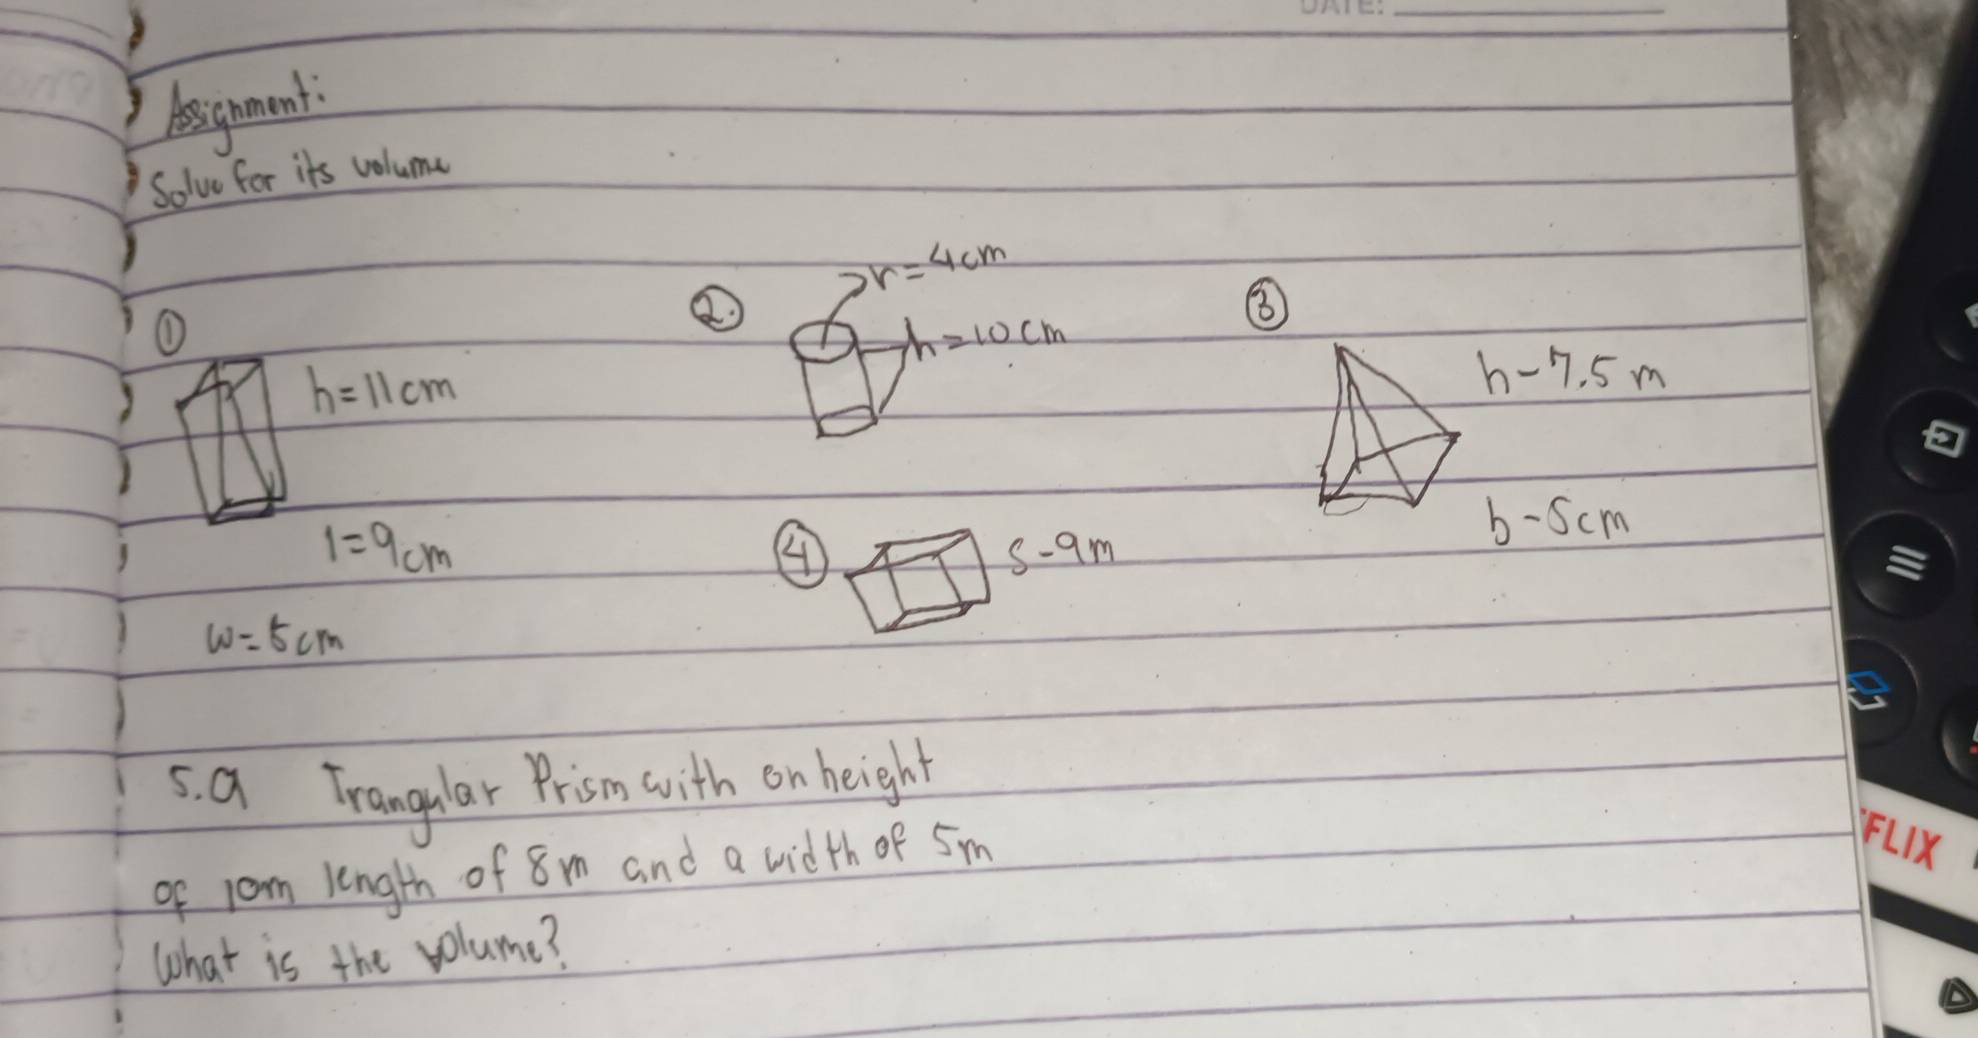 DATE:
Assignment:
Solve for its volume
①
h=11cm
l=9cm
w=5cm
②.
r=4cm
h=10cm
③
h-7.5m
b-5cm
④
s-9m
5.a Trangular Prism with on height
of 10m length of 8m and a width of 5m
What is the volume?
FLIX